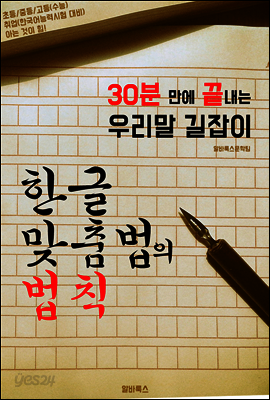 초등/중등/고등(수능)
취업(한국어능력시험 대비)
아는 것이 힘!
30분 만에 끝내는
우리말 길잡이
알바트로스문학팀
한글
맞춤법의
법칙
yes24
알바트로스